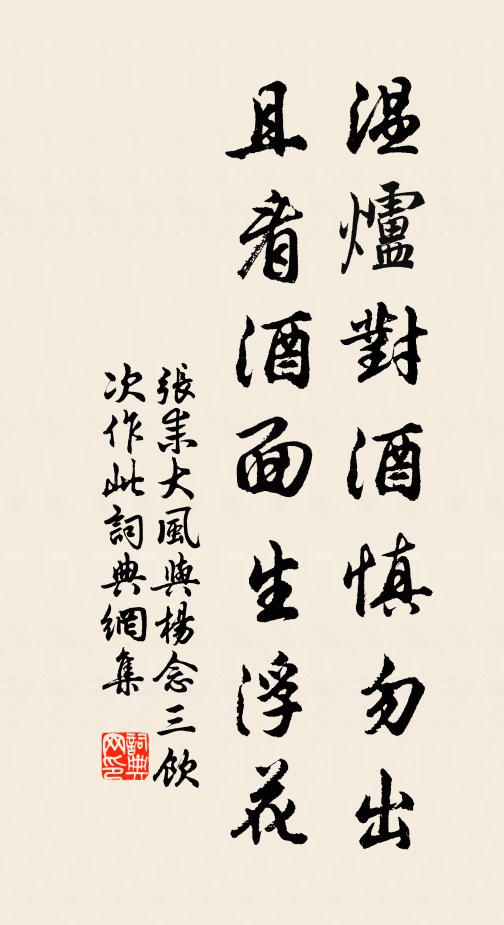 溫爐對酒慎勿出
且看酒面生浮花
張耒大風與楊念三飲
次作此詞典網集
詞典
網印